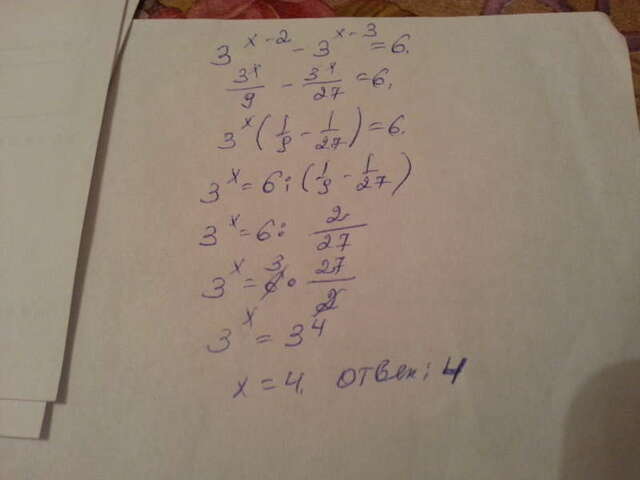 3^(x-2) - 3^(x-3) = 6.
3^x/9 - 3^x/27 = 6.
3^x (1/9 - 1/27) = 6.
3^x = 6 : (1/9 - 1/27)
3^x = 6 : 2/27
3^x = 6̸ 3 · 27/2̸
3^x = 3^4
x = 4. Ответ: 4